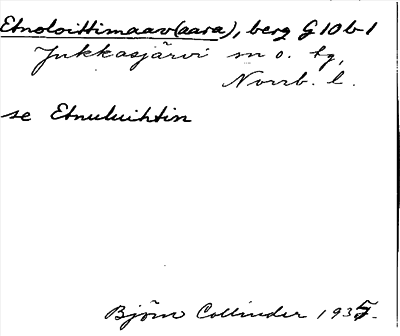 Etnoloittimaav(aara), berg G 10 b-1
Jukkasjärvi sn o. tg,
Norrb. l.
se Etnuluihtin
Björn Collinder 1935.